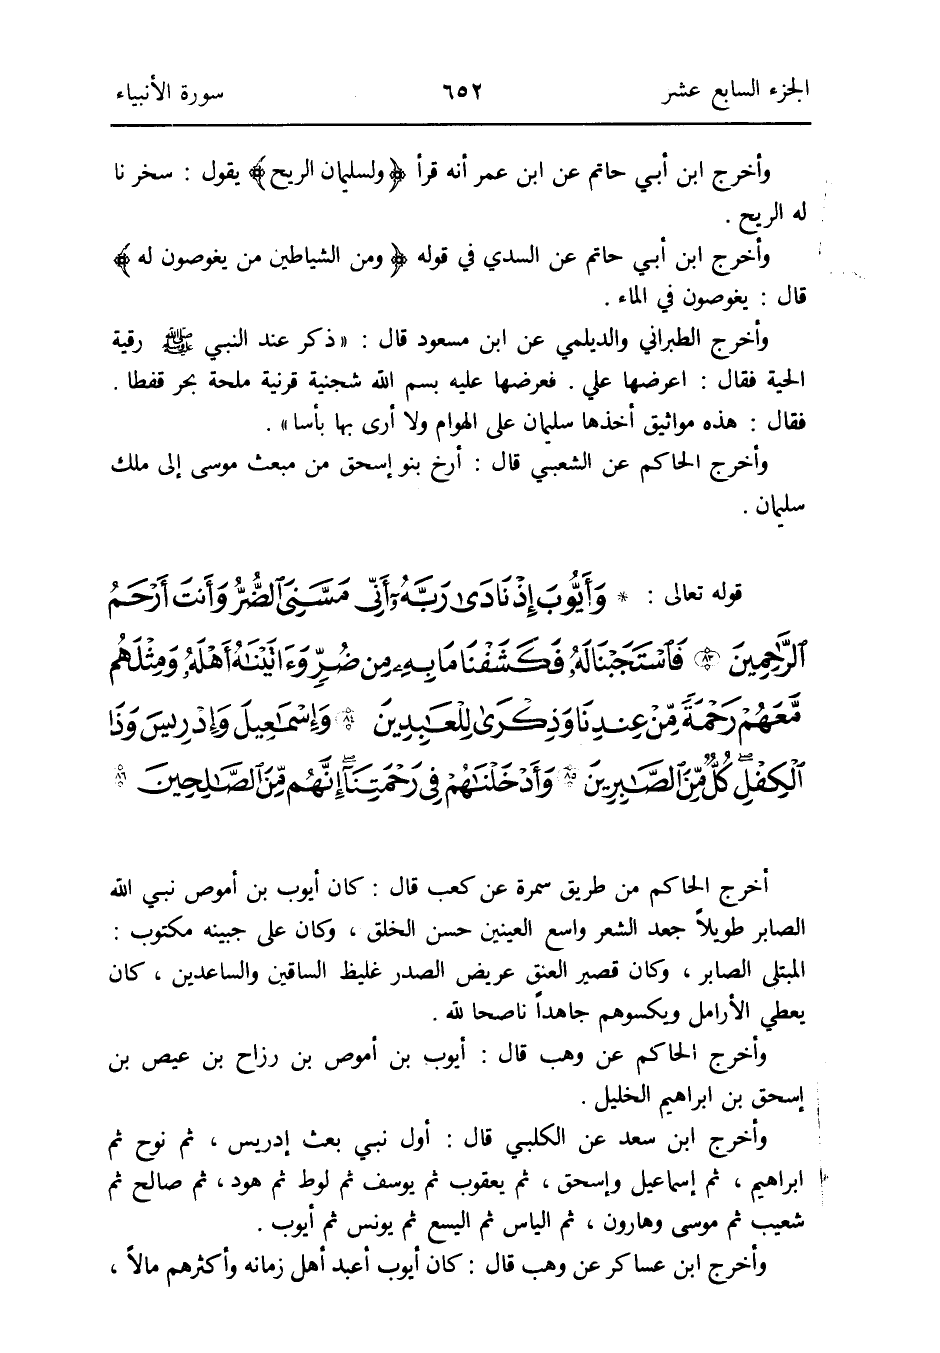 الجزء السابع عشر ٦٥٢ سورة الأنبياء
وأخرج ابن أبي حاتم عن ابن عمر أنه قرأ ﴿ولسليمان الريح﴾ يقول : سخر نا
له الريح .
وأخرج ابن أبي حاتم عن السدي في قوله ﴿ ومن الشياطين من يغوصون له ﴾
قال : يغوصون في الماء .
وأخرج الطبراني والديلمي عن ابن مسعود قال : «ذكر عند النبي ﷺ رقية
الحية فقال : اعرضها علي . فعرضها عليه بسم الله شجنية قرنية ملحة بحر قفطا .
فقال : هذه مواثيق أخذها سليمان على الهوام ولا أرى بها بأسا» .
وأخرج الحاكم عن الشعبي قال : أرخ بنو إسحق من مبعث موسى إلى ملك
سليمان .
قوله تعالى : * وَأَيُّوبَ إِذْ نَادَىٰ رَبَّهُۥٓ أَنِّى مَسَّنِىَ ٱلضُّرُّ وَأَنتَ أَرْحَمُ
ٱلرَّٰحِمِينَ ٨٣ فَٱسْتَجَبْنَا لَهُۥ فَكَشَفْنَا مَا بِهِۦ مِن ضُرٍّ وَءَاتَيْنَٰهُ أَهْلَهُۥ وَمِثْلَهُم
مَّعَهُمْ رَحْمَةً مِّنْ عِندِنَا وَذِكْرَىٰ لِلْعَٰبِدِينَ ٨٤ وَإِسْمَٰعِيلَ وَإِدْرِيسَ وَذَا
ٱلْكِفْلِ ۖ كُلٌّ مِّنَ ٱلصَّٰبِرِينَ ٨٥ وَأَدْخَلْنَٰهُمْ فِى رَحْمَتِنَآ ۖ إِنَّهُم مِّنَ ٱلصَّٰلِحِينَ ٨٦
أخرج الحاكم من طريق سمرة عن كعب قال : كان أيوب بن أموص نبي الله
الصابر طويلاً جعد الشعر واسع العينين حسن الخلق ، وكان على جبينه مكتوب :
المبتلى الصابر ، وكان قصير العنق عريض الصدر غليظ الساقين والساعدين ، كان
يعطي الأرامل ويكسوهم جاهداً ناصحا لله .
وأخرج الحاكم عن وهب قال : أيوب بن أموص بن رزاح بن عيص بن
إسحق بن ابراهيم الخليل .
وأخرج ابن سعد عن الكلبي قال : أول نبي بعث إدريس ، ثم نوح ثم
ابراهيم ، ثم إسماعيل وإسحق ، ثم يعقوب ثم يوسف ثم لوط ثم هود ، ثم صالح ثم
شعيب ثم موسى وهارون ، ثم الياس ثم اليسع ثم يونس ثم أيوب .
وأخرج ابن عساكر عن وهب قال : كان أيوب أعبد أهل زمانه وأكثرهم مالاً ،